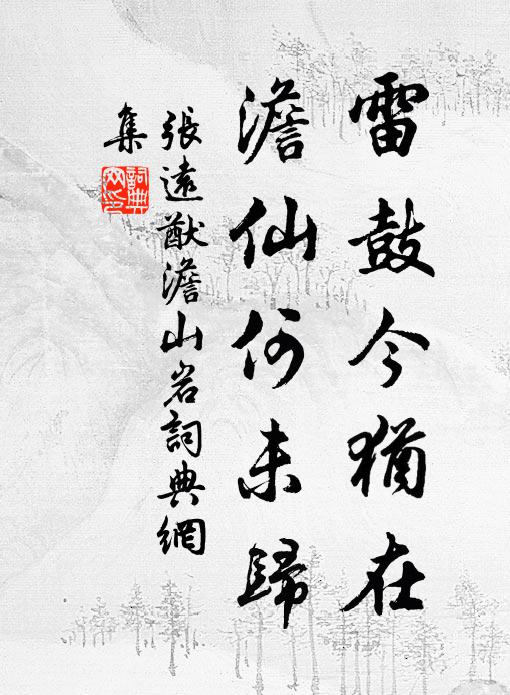 雷鼓今猶在
澹仙何未歸
張遠猷澹山岩詞典網
集
詞典網印